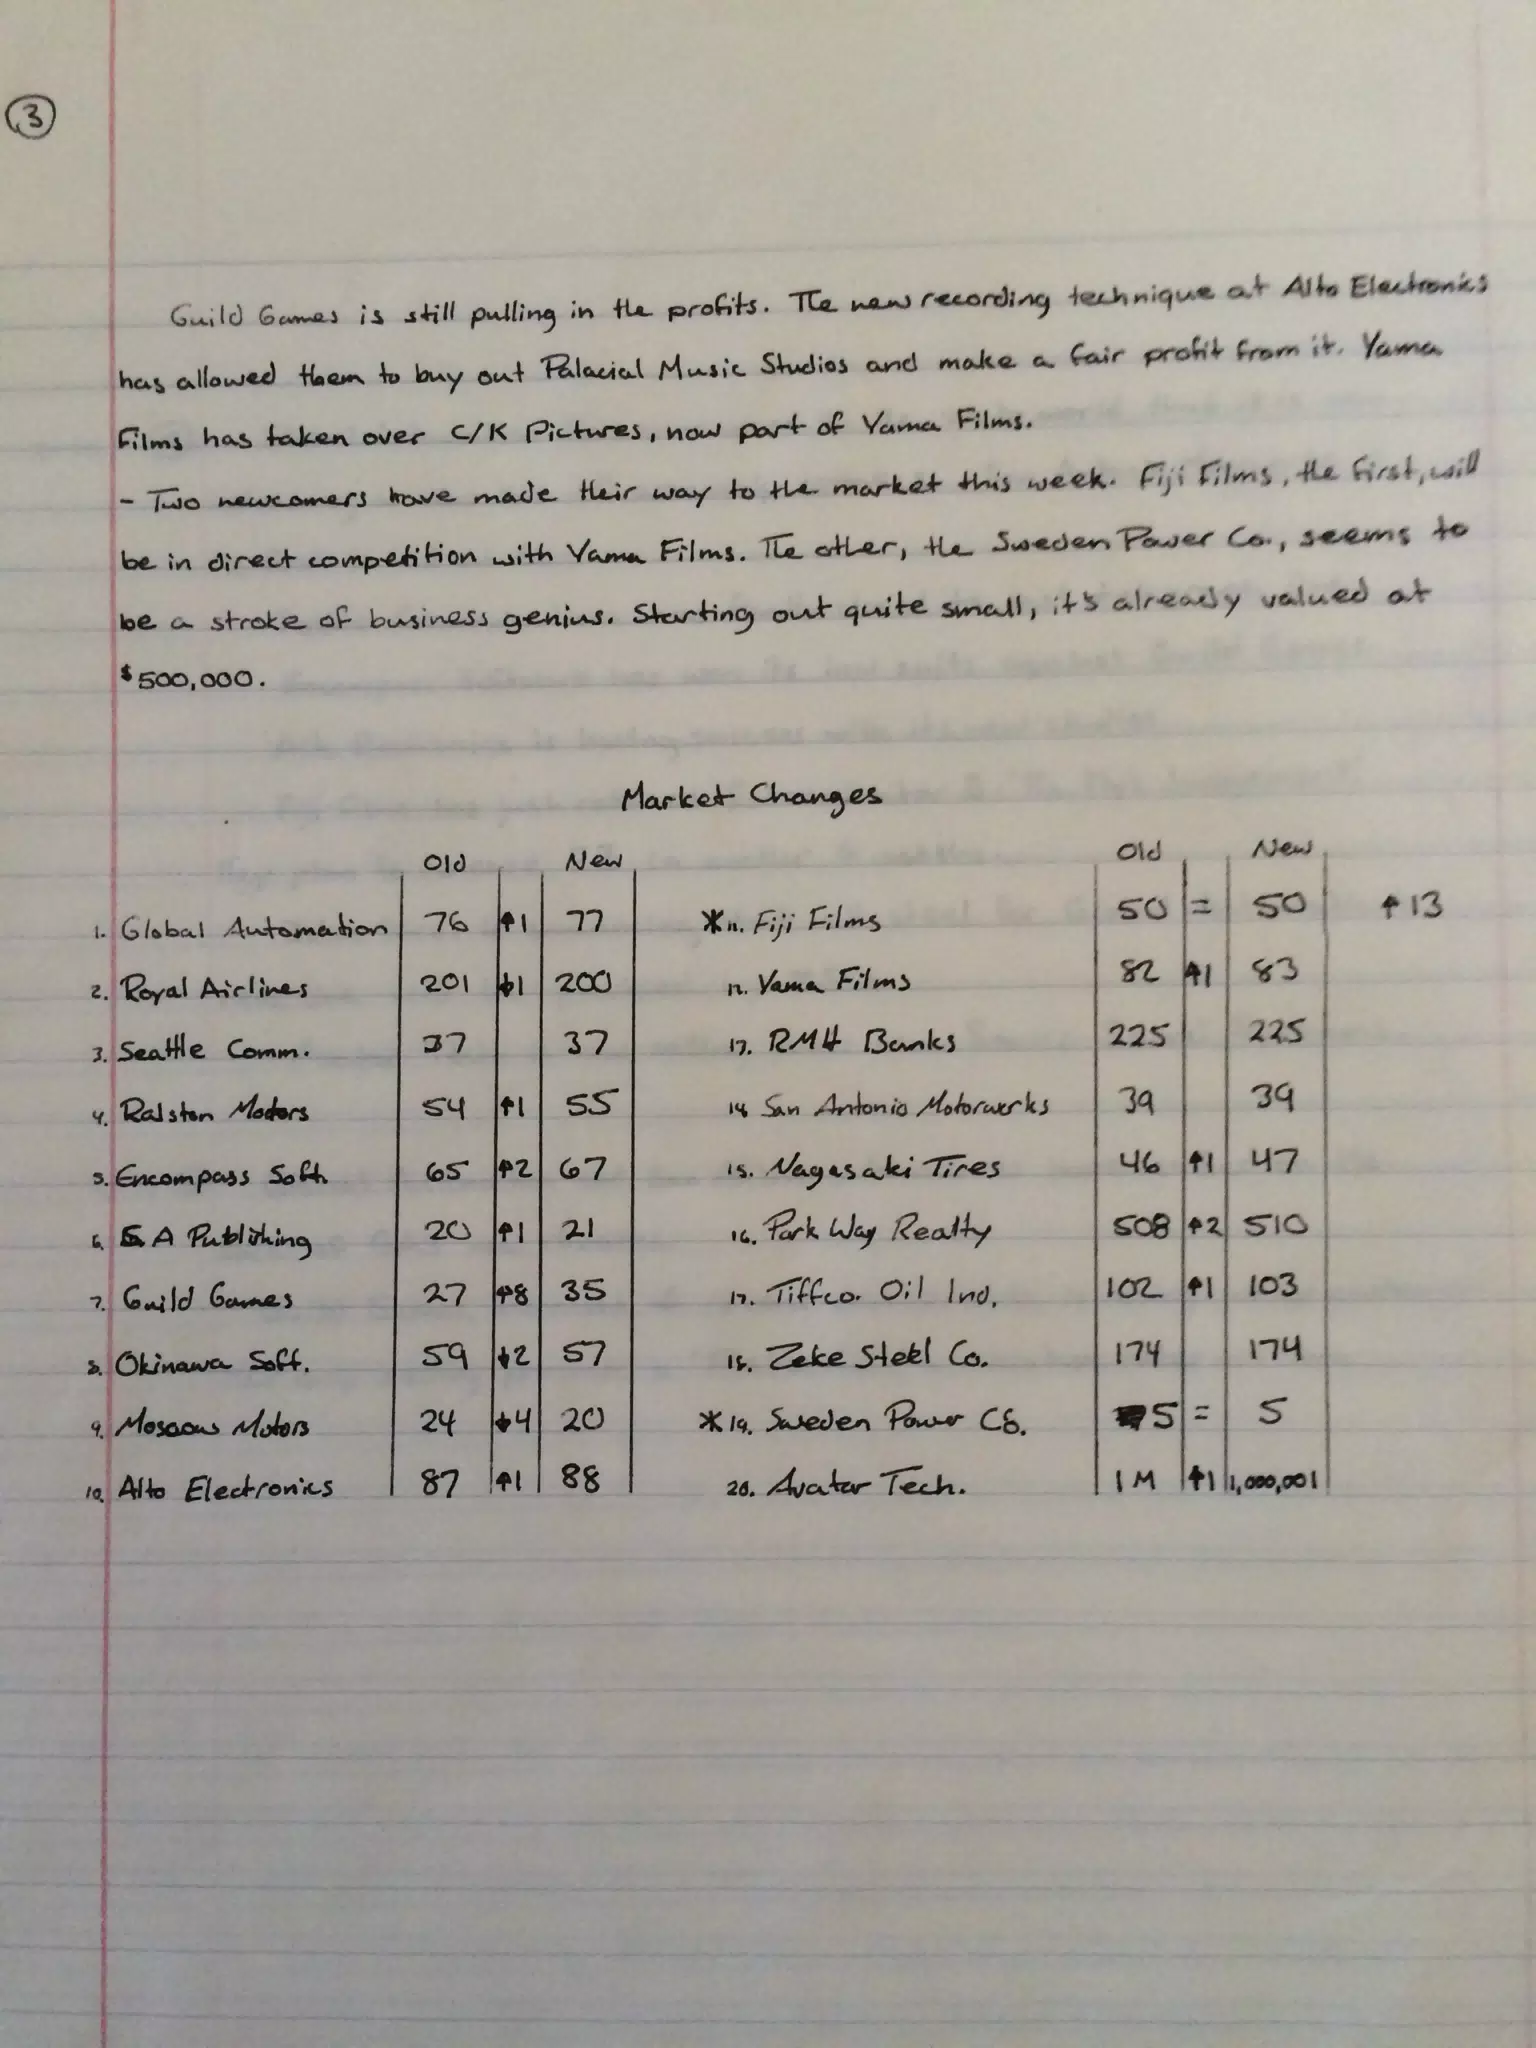 3
Guild Games is still pulling in the profits. The new recording technique at Alto Electronics
has allowed them to buy out Palacial Music Studios and make a fair profit from it. Yama
Films has taken over C/K Pictures, now part of Yama Films.
- Two newcomers have made their way to the market this week. Fiji Films, the first, will
be in direct competition with Yama Films. The other, the Sweden Power Co., seems to
be a stroke of business genius. Starting out quite small, it's already valued at
$500,000.
Market Changes
Old New Old New
1. Global Automation 76 ↑1 77 *11. Fiji Films 50 = 50 ↑13
2. Royal Airlines 201 ↓1 200 12. Yama Films 82 ↑1 83
3. Seattle Comm. 37 37 13. RMH Banks 225 225
4. Ralston Motors 54 ↑1 55 14 San Antonio Motorwerks 39 39
5. Encompass Soft. 65 ↑2 67 15. Nagasaki Tires 46 ↑1 47
6. A Publishing 20 ↑1 21 16. Park Way Realty 508 ↑2 510
7. Guild Games 27 ↑8 35 17. Tiffco. Oil Ind. 102 ↑1 103
8. Okinawa Soft. 59 ↓2 57 18. Zeke Steel Co. 174 174
9. Moscow Motors 24 ↓4 20 *19. Sweden Power Co. 5 = 5
10. Alto Electronics 87 ↑1 88 20. Avatar Tech. 1M ↑1 1,000,001